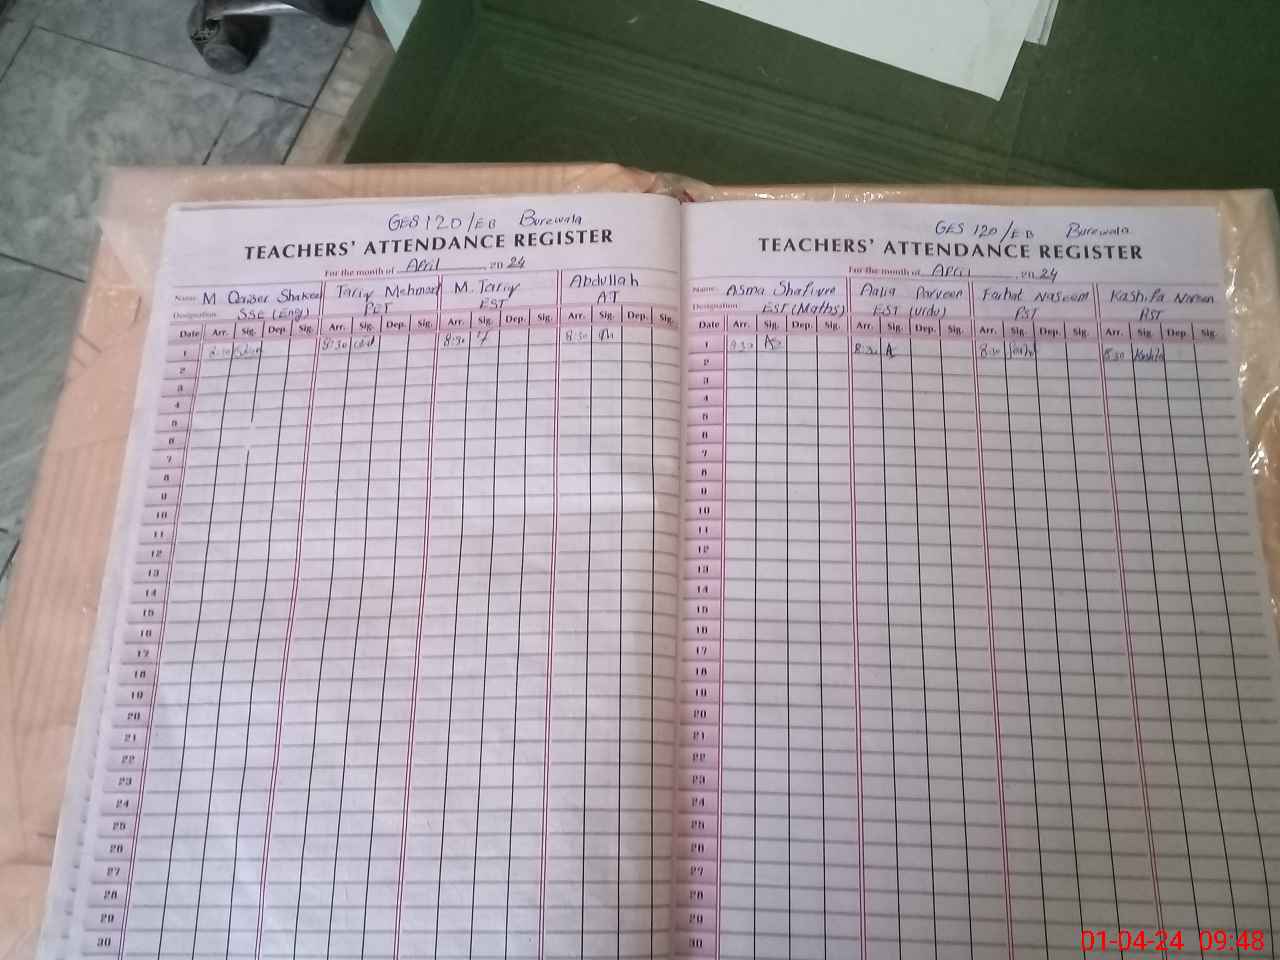 GES 120/EB Burewala
TEACHERS' ATTENDANCE REGISTER
For the month of April 2024
Name M Qaiser Shakeel Tariq Mehmood M. Tariq Abdullah
Designation SSE (Eng) PET EST AT
Date Arr. Sig. Dep Sig. Arr. Sig. Dep. Sig. Arr. Sig. Dep. Sig. Arr. Sig. Dep. Sig.
1 8:30 8:30 8:30 8:30
2
3
4
5
6
7
8
9
10
11
12
13
14
15
16
17
18
19
20
21
22
23
24
25
26
27
28
29
30
GES 120/EB Burewala
TEACHERS' ATTENDANCE REGISTER
For the month of April 2024
Name Asma Shafique Aalia Parveen Farhat Naseem Kashifa Noreen
Designation EST (Maths) EST (Urdu) PST PST
Date Arr. Sig. Dep. Sig. Arr. Sig. Dep. Sig. Arr. Sig. Dep. Sig. Arr. Sig. Dep. Sig.
1 8:30 8:30 8:30 Farhat 8:30 Kashifa
2
3
4
5
6
7
8
9
10
11
12
13
14
15
16
17
18
19
20
21
22
23
24
25
26
27
28
29
30
01-04-24 09:48